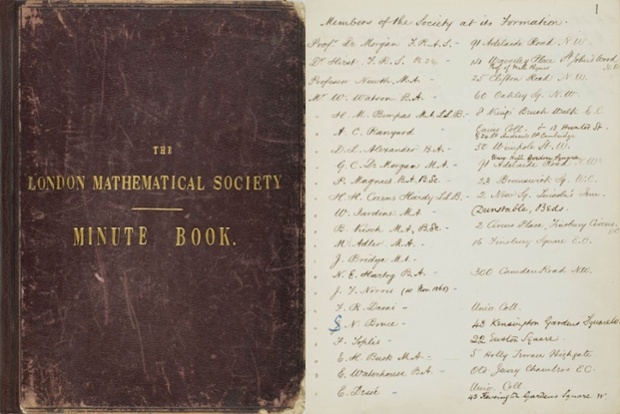 THE
LONDON MATHEMATICAL SOCIETY
MINUTE BOOK.
1
Members of the Society at its Formation.
Profr De Morgan F.R.A.S. - 91 Adelaide Road N.W.
Dr Hirst F.R.S. - Waverley Place St John's Wood
Professor M.A. - 25 Clifton Road N.W.
Mr W. Watson B.A. - 60 Oakley Sq. N.W.
H. M. Bompas M.A. LL.B. - 8 King's Bench Walk E.C.
A. C. Ranyard - Caius Coll. & 13 Hunter St.
St Andrew's St Cambridge
D. L. Alexander B.A. - 50 Wimpole St. W.
Univ. Hall Gordon Square
G. C. De Morgan M.A. - 91 Adelaide Road N.W.
P. Magnus B.A. B.Sc. - 23 Brunswick Sq. W.C.
H. H. Cozens Hardy LL.B. - 2 New Sq. Lincoln's Inn.
W. Jardine M.A. Dunstable, Beds.
B. Kisch M.A., B.Sc. - 2 Circus Place, Finsbury Circus
M. Adler M.A. - 16 Finsbury Square E.C.
J. Bridge M.A.
N. E. Hartog B.A. - 300 Camden Road N.W.
J. T. Norris
F. R. Univ. Coll.
N. Bruce - 43 Kensington Gardens Square W.
F. Toplis - 22 Euston Square.
E. H. Busk M.A. - 5 Holly Terrace Highgate
E. Waterhouse B.A. - Old Jewry Chambers E.C.
E. - Univ. Coll.
43 Kensington Gardens Square W.